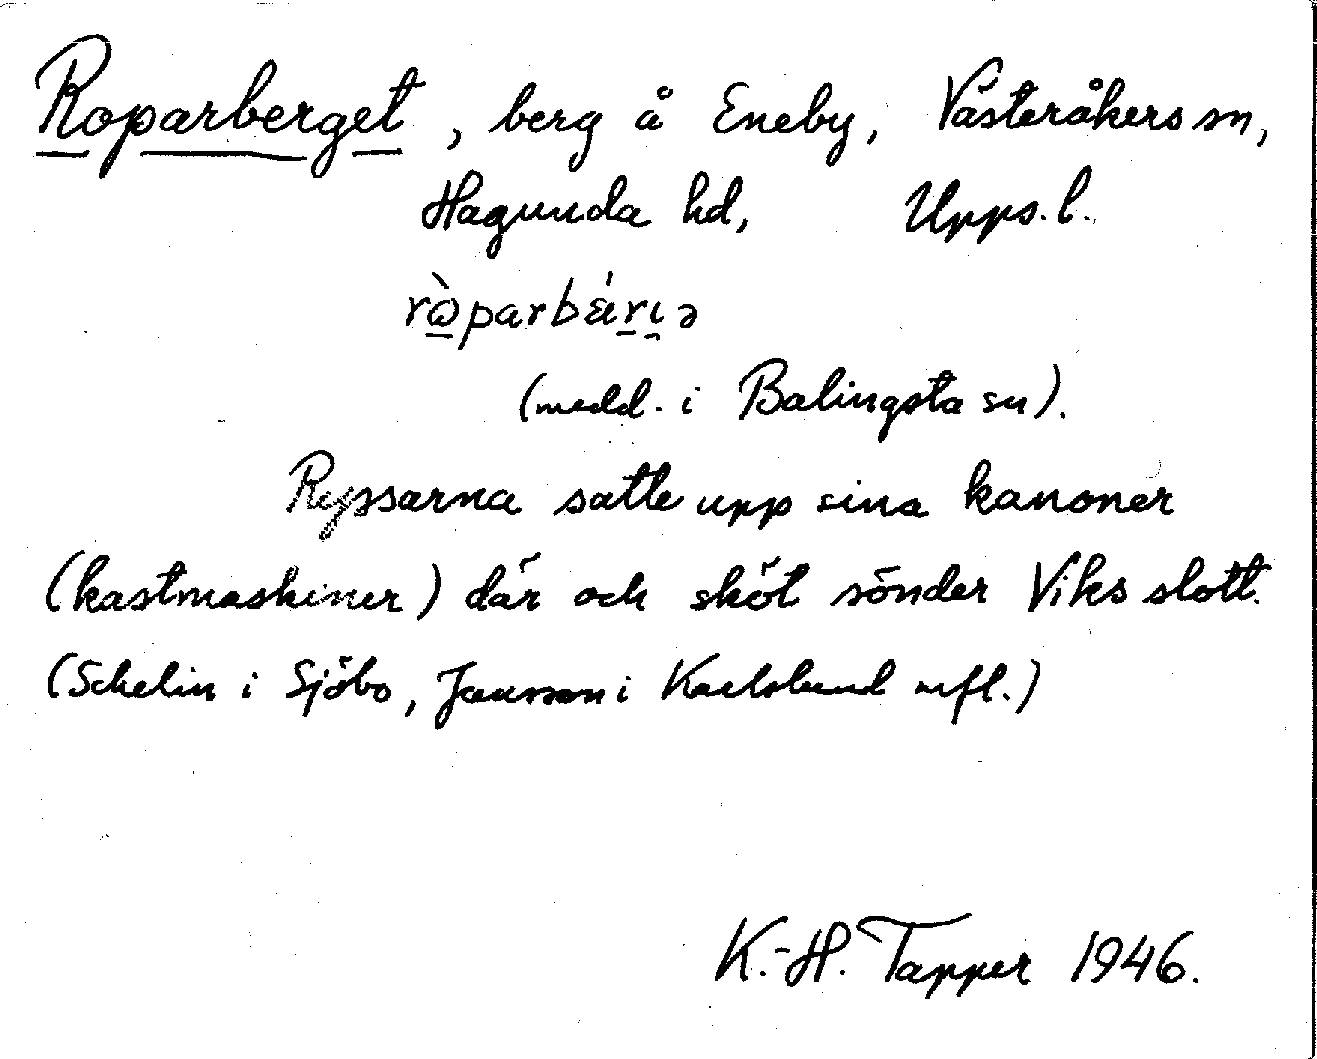 Roparberget, berg å Eneby, Västeråkers sn,
Hagunda hd, Upps. l.
rὼparbǽrıə
(medd. i Balingsta sn).
Ryssarna satte upp sina kanoner
(kastmaskiner) där och sköt sönder Viks slott.
(Schelin i Sjöbo, Jansson i Karlslund mfl.)
K.-H. Tapper 1946.